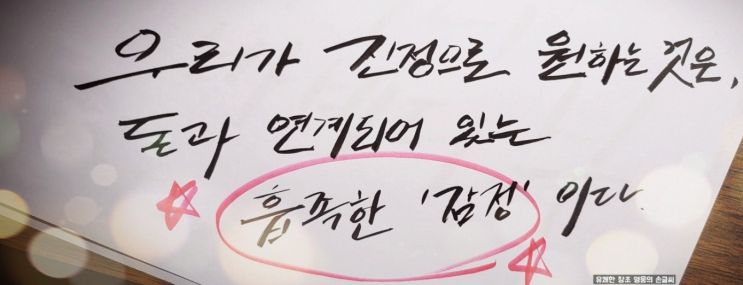 우리가 진정으로 원하는 것은,
돈과 연계되어 있는
흡족한 '감정' 이다.
유쾌한 창조 영웅의 손글씨